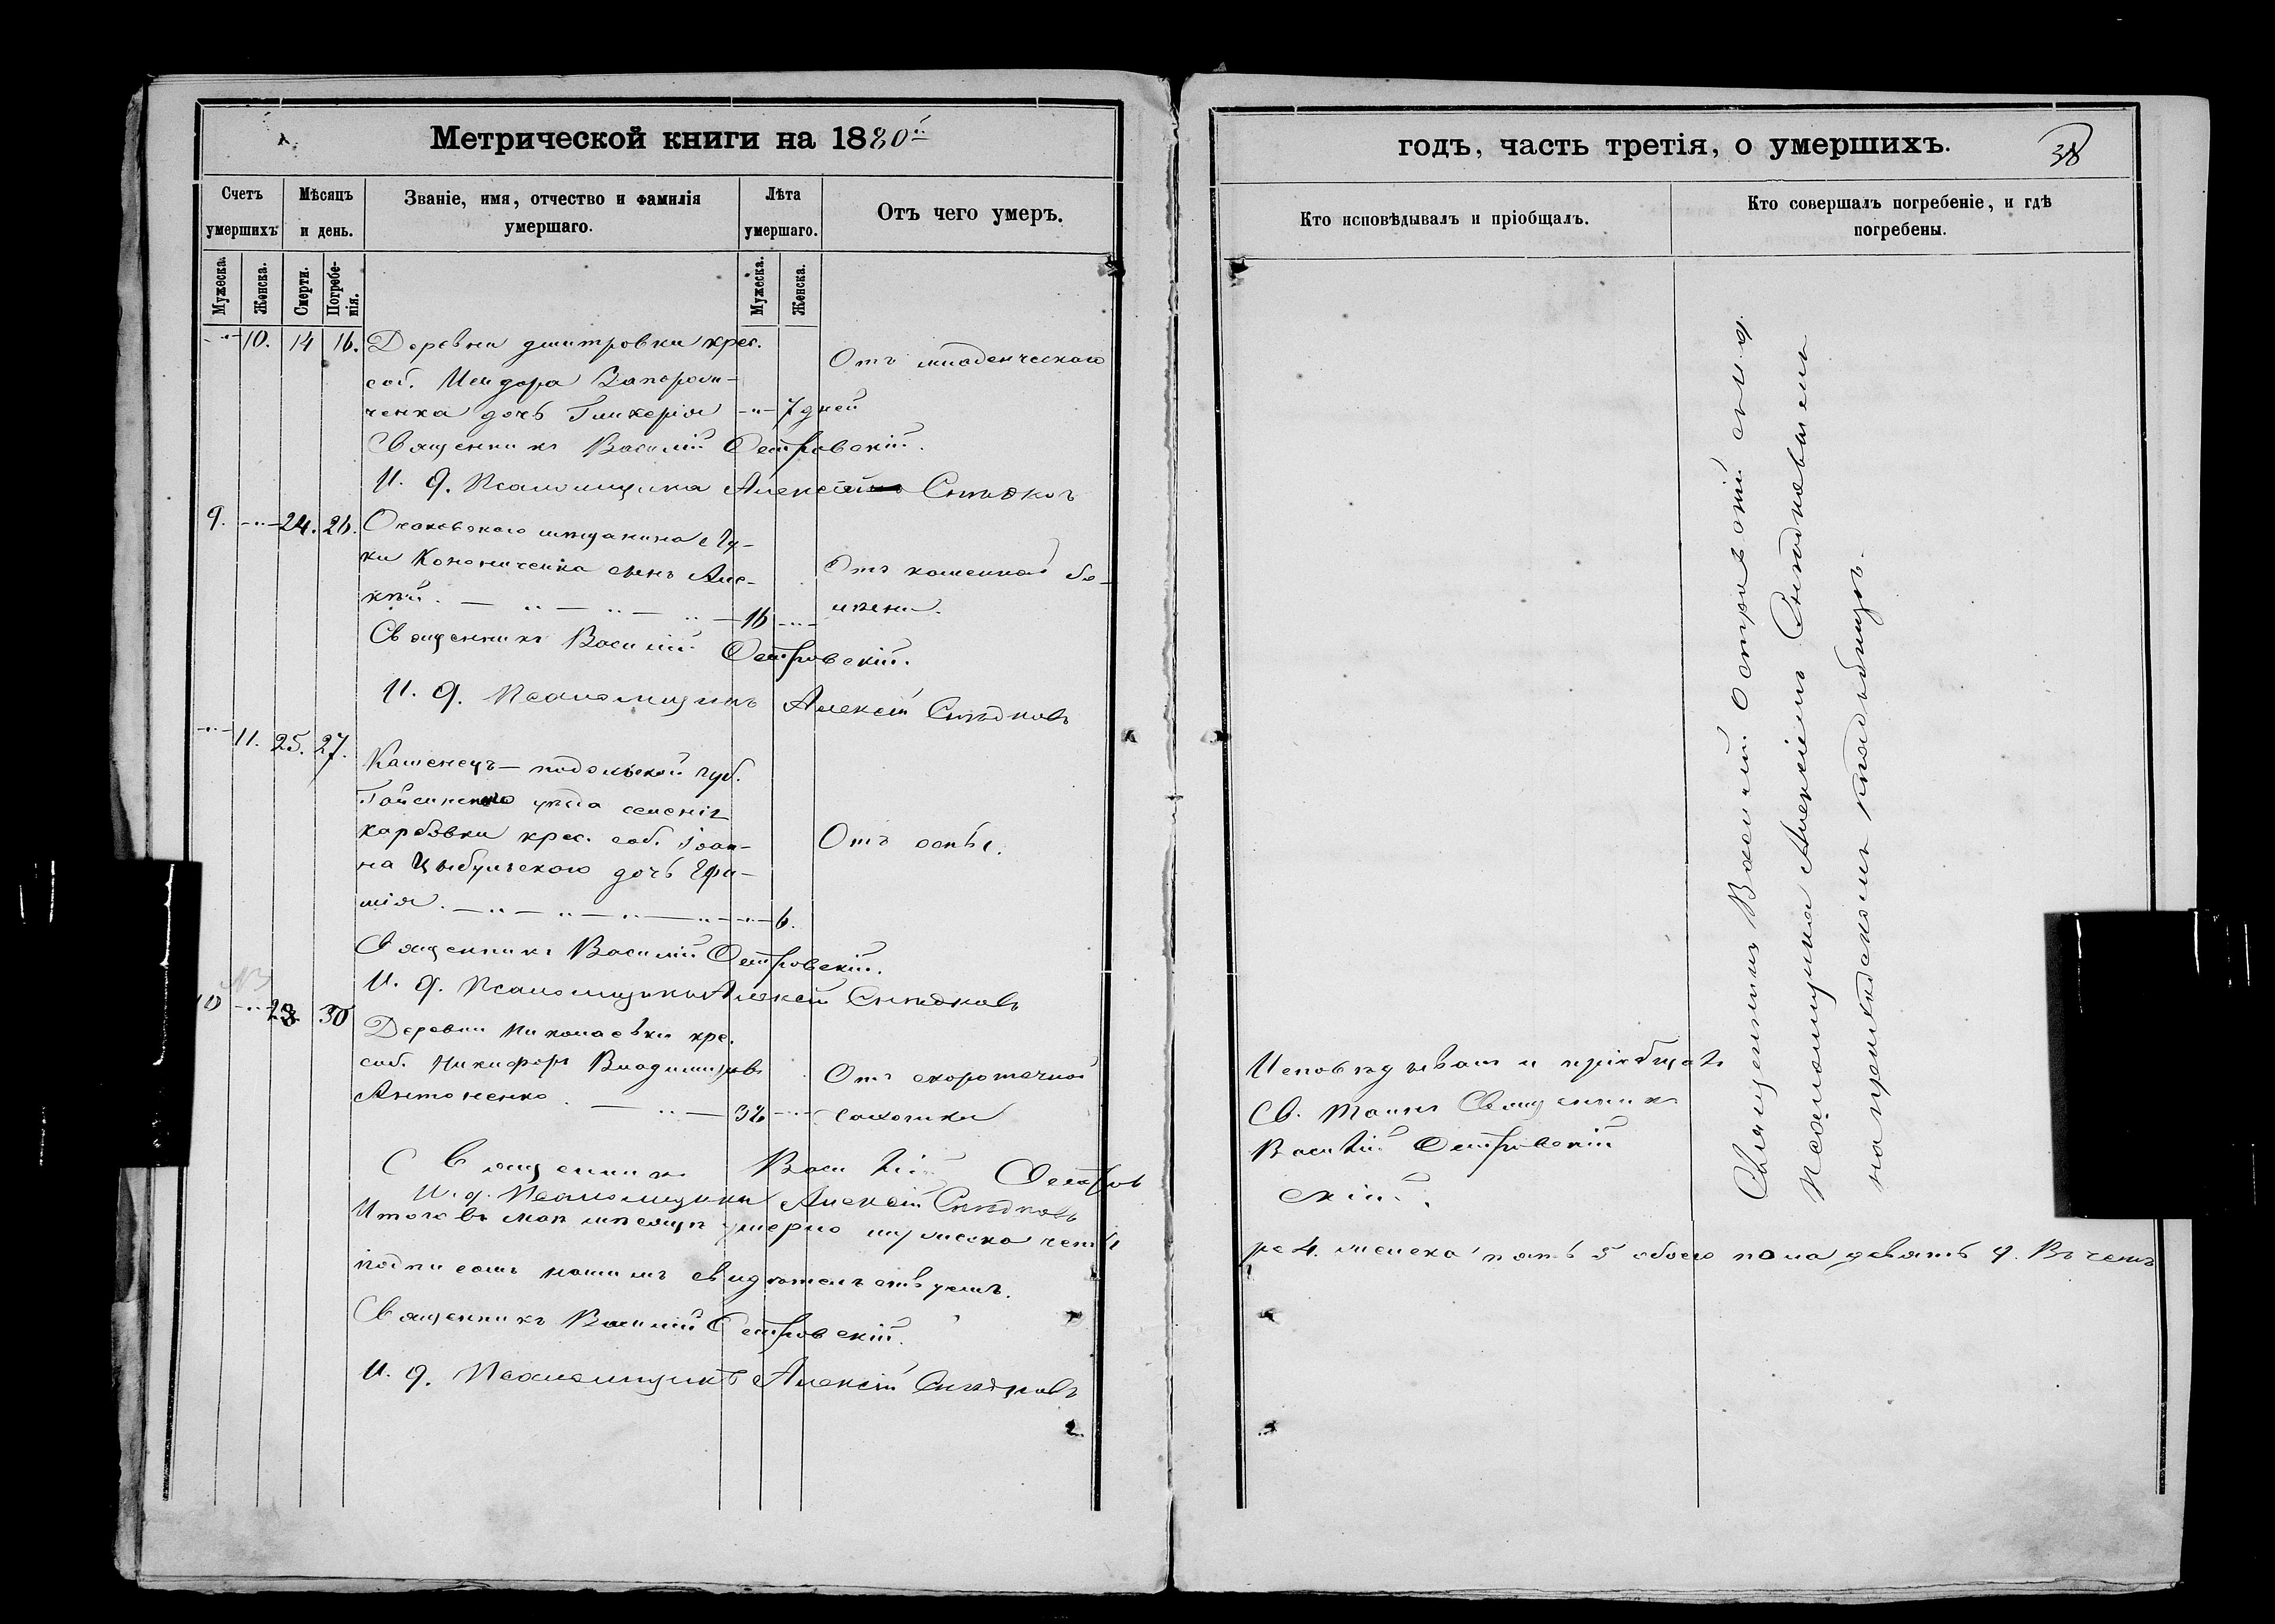 Метрической книги на 1880й
Счетъ умершихъ
Мѣсяцъ и день.
Званіе, имя, отчество и фамилія умершаго.
Лѣта умершаго.
Отъ чего умеръ.
Мужеска.
Женска.
Смерти.
Погребенія.
Мужеска.
Женска.
10. 14 16. Деревни дмитровки крес.
Отъ младенческаго
соб. Исидора Запорож-
ченка дочь Гликерія 7 дней
Священникъ Василій Островскій.
И. д. Псаломщика Алексѣй
9. 24. 26. Очаковскаго мѣщанина Лу-
ки Конониченка сынъ Але-
Отъ каменной бо-
ксѣй. 16
лѣзни.
Священникъ Василій Островскій.
И. д. Псаломщикъ Алексѣй
11. 25. 27.
Каменецъ-подольской губ.
Гайсинскаго уѣзда селенія
карбовки крес. соб. Іоан-
Отъ оспы.
на Цыбульскаго дочь Ефи-
мія. 6.
Священникъ Василій Островскій.
И. д. Псаломщика Алексѣй
10 28 30
Деревни Николаевки кре.
соб. Никифоръ Владиміровъ
Отъ скоротечной
Антоненко. 32
чахотки
Священникъ Василій Остров
И. д. Псаломщика Алексѣй
Итого въ маѣ мѣсяцѣ умерло мужеска четы
подписомъ нашимъ свидѣтельствуемъ.
Священникъ Василій Островскій.
И. д. Псаломщикъ Алексѣй
годъ, часть третія, о умершихъ.
38
Кто исповѣдывалъ и пріобщалъ.
Кто совершалъ погребеніе, и гдѣ погребены.
Исповѣдывалъ и пріобщалъ
Св. Таинъ Священникъ
Василій Островскій
скій.
Священникъ Василій Островскій съ и. д.
Псаломщика Алексѣемъ
на приходскомъ кладбищѣ.
ре 4. женска пять 5 обоего пола девять 9. Въ чемъ